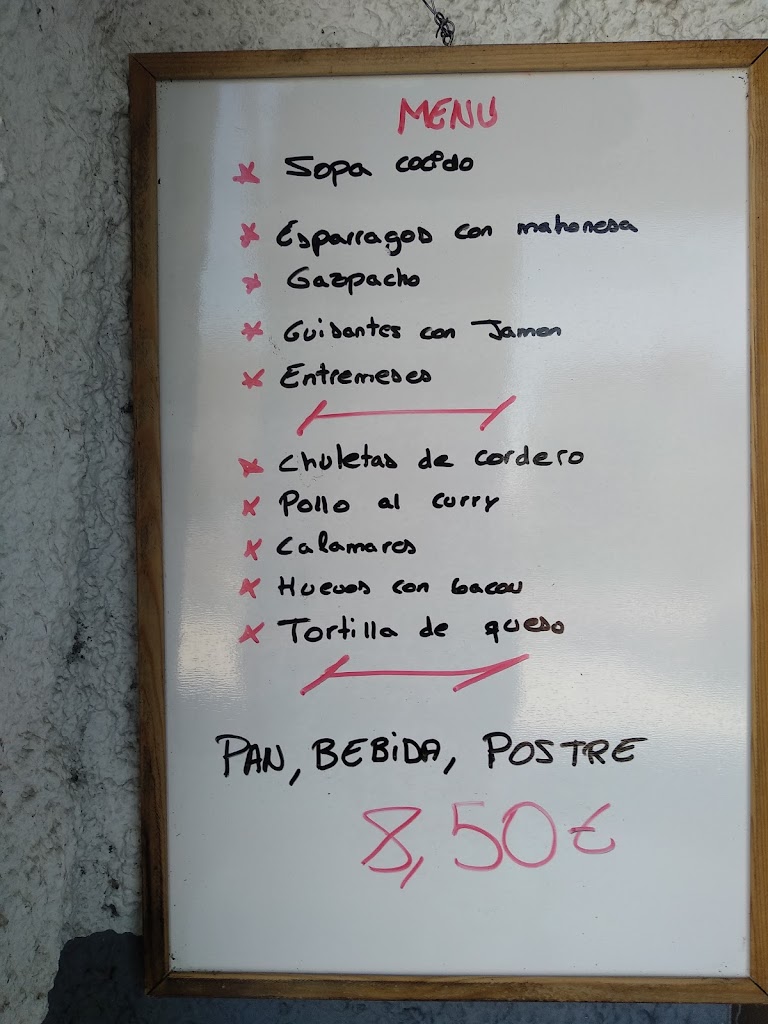 MENU
* Sopa cocido
* Esparragos con mahonesa
* Gazpacho
* Guisantes con Jamon
* Entremeses
* Chuletas de cordero
* Pollo al curry
* Calamares
* Huevos con bacon
* Tortilla de queso
PAN, BEBiDA, POSTRE
8,50€